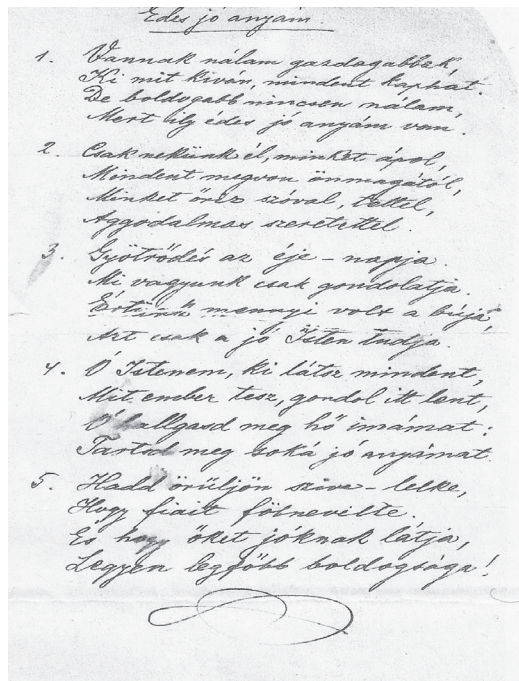 Édes jó anyám.
1. Vannak nálam gazdagabbak,
Ki mit kiván, mindent kaphat.
De boldogabb nincsen nálam,
Mert ily édes jó anyám van.
2. Csak nekünk él, minket ápol,
Mindent megvon önmagától,
Minket őriz szóval, tettel,
Aggodalmas szeretettel.
3. Gyötrődés az éje - napja
Mi vagyunk csak gondolatja.
Értünk mennyi volt a búja,
Azt csak a jó Isten tudja.
4. Ó Istenem, ki látsz mindent,
Mit ember tesz, gondol itt lent,
Ó hallgasd meg hő imámat:
Tartsd meg soká jó anyámat.
5. Hadd örüljön szive - lelke,
Hogy fiait fölnevelte.
És hogy őket jóknak látja,
Legyen legfőbb boldogsága!